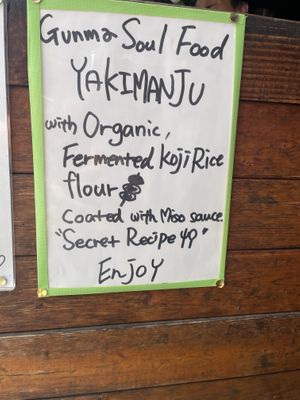 Gunma Soul Food
YAKIMANJU
with Organic,
Fermented Koji Rice
flour
Coated with Miso sauce
"Secret Recipe
EnJoY